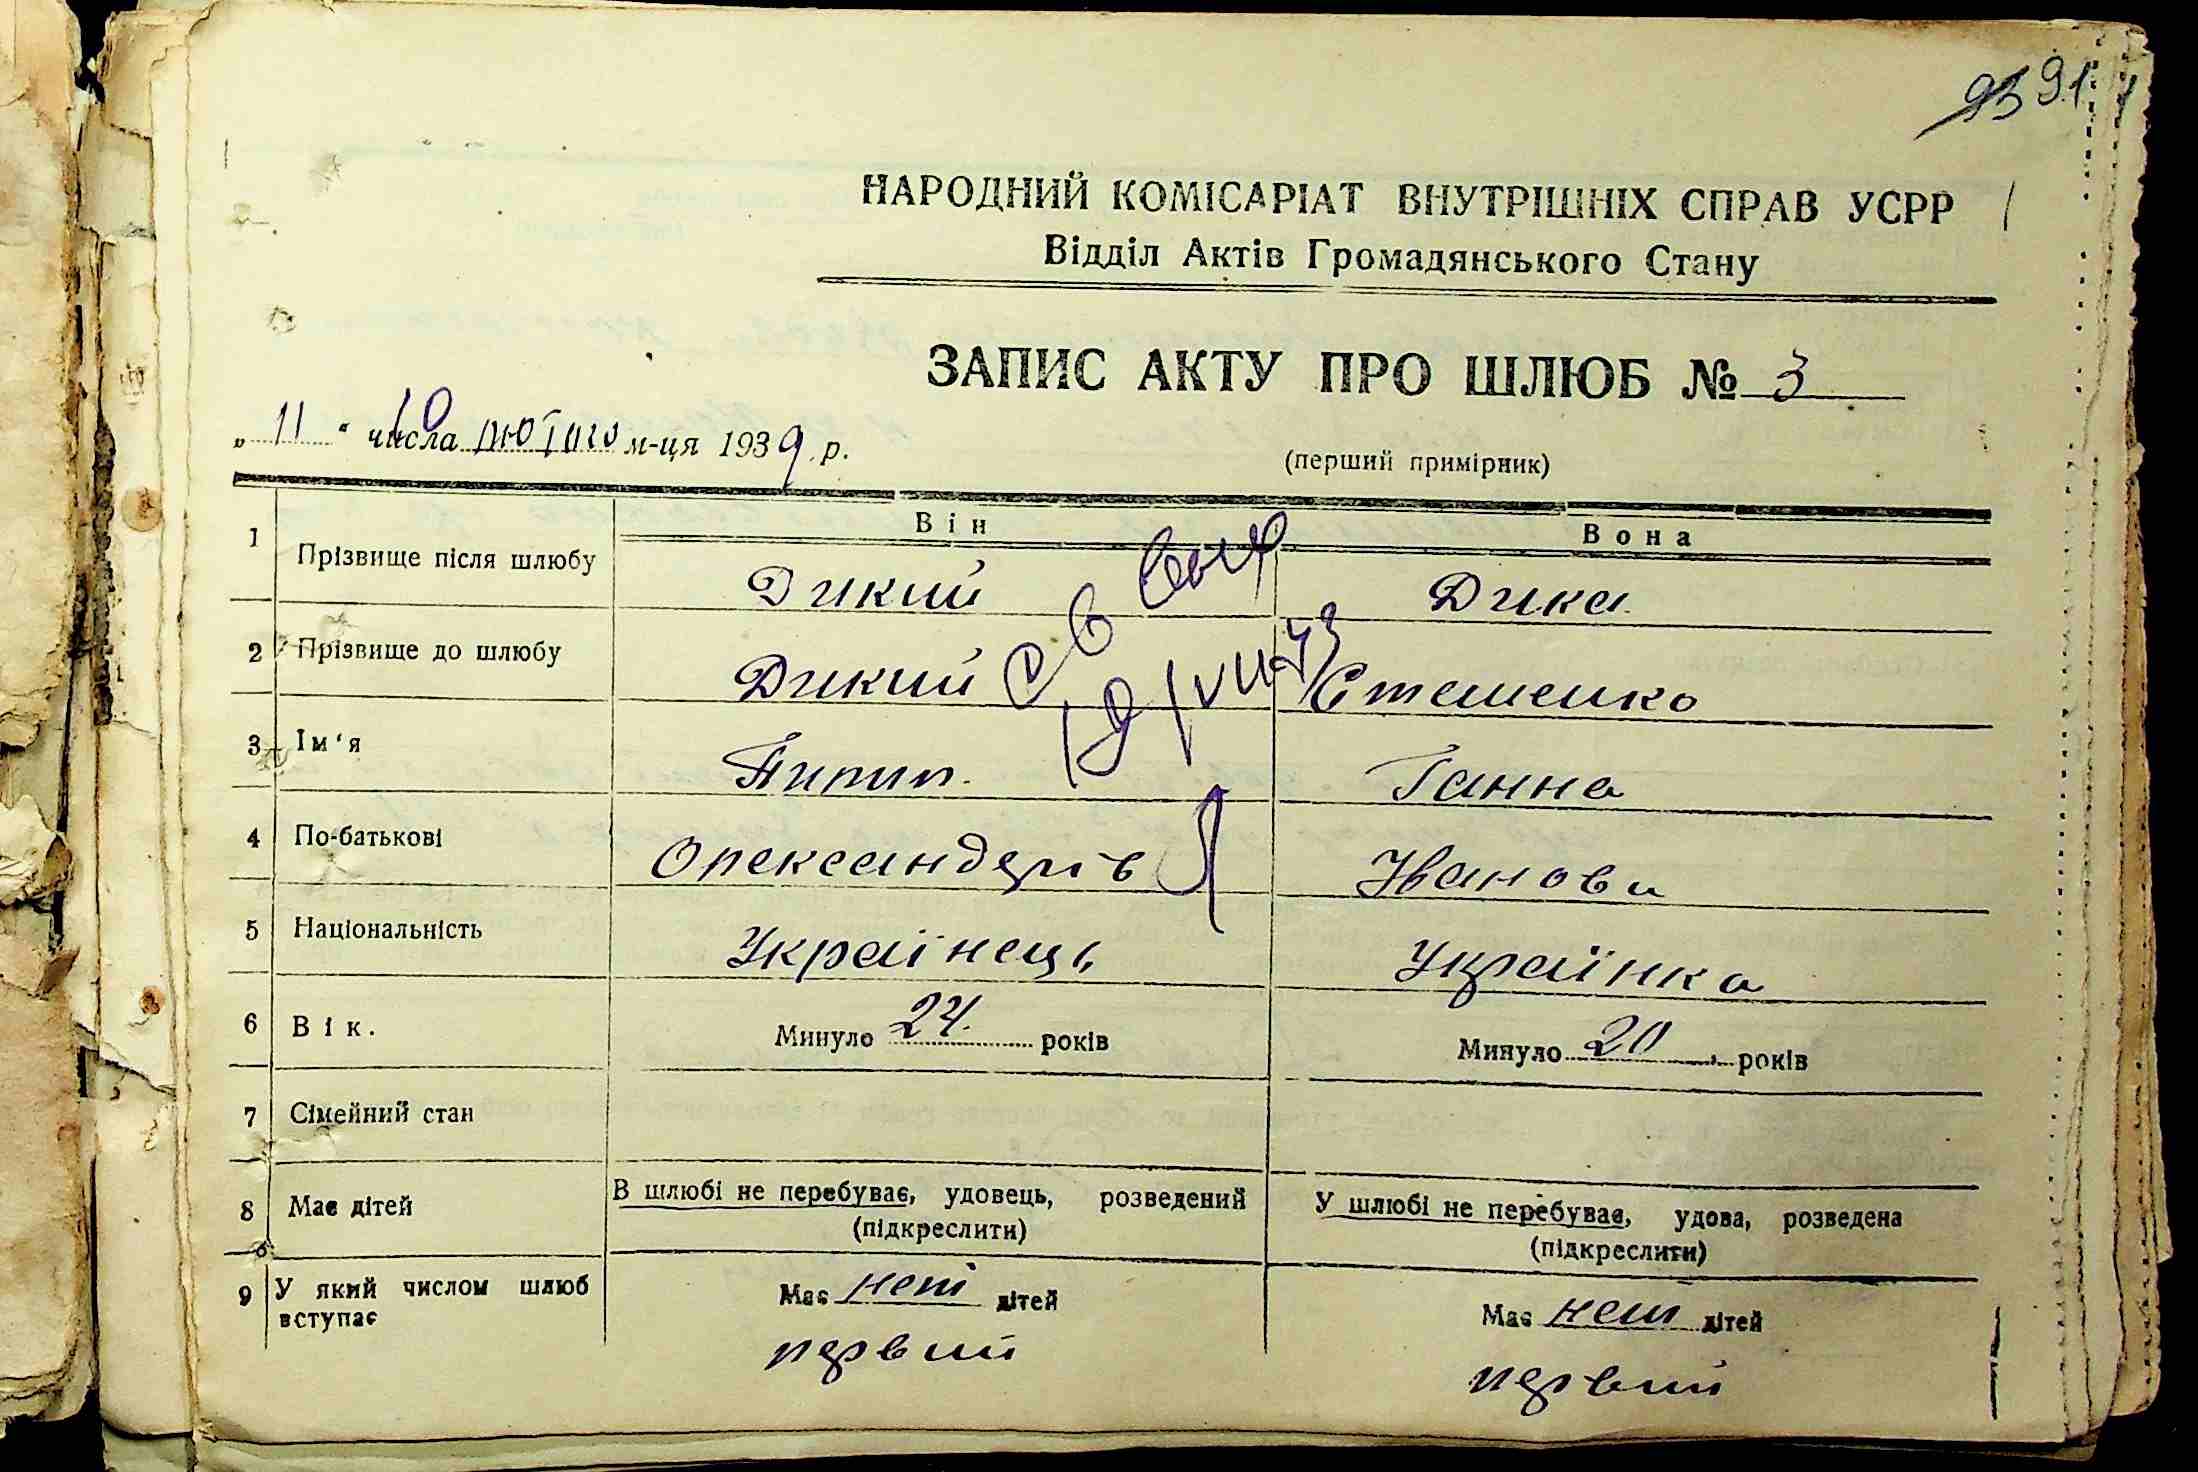 91
НАРОДНИЙ КОМІСАРІАТ ВНУТРІШНІХ СПРАВ УСРР
Відділ Актів Громадянського Стану
ЗАПИС АКТУ ПРО ШЛЮБ № 3
„ 11 “ числа лютого м-ця 1939 р.
(перший примірник)
Він Вона
1 Прізвище після шлюбу Дикий Дика
2 Прізвище до шлюбу Дикий Стешенко
3 Ім‘я Пилип. Ганна
4 По-батькові Олександерів Иванови
5 Національність Українець Українка
6 Вік. Минуло 24. років Минуло 20 років
7 Сімейний стан
8 Має дітей В шлюбі не перебуває, удовець, розведений У шлюбі не перебуває, удова, розведена
(підкреслити) (підкреслити)
9 У який числом шлюб вступає Має нет дітей Має нет дітей
первий первий